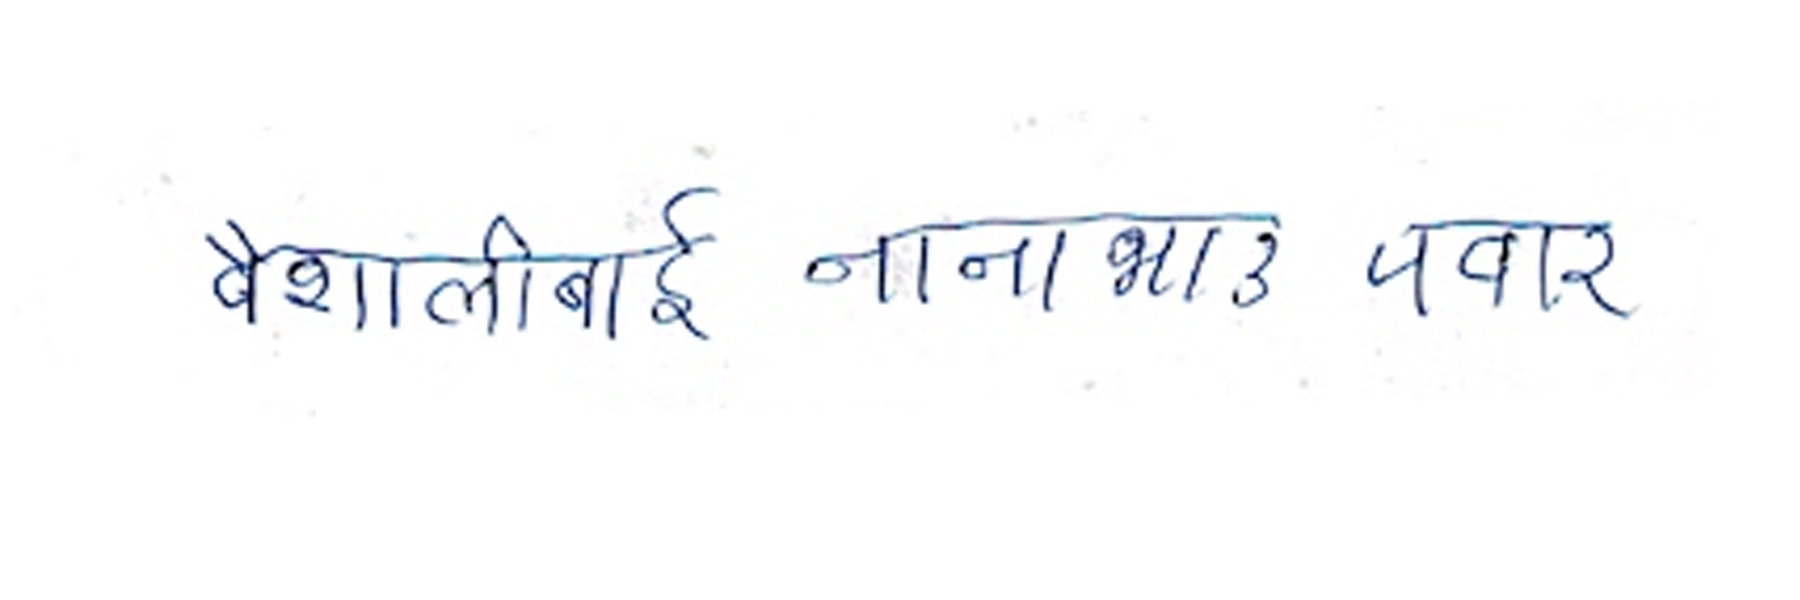 वैशालीबाई नानाभाउ पवार